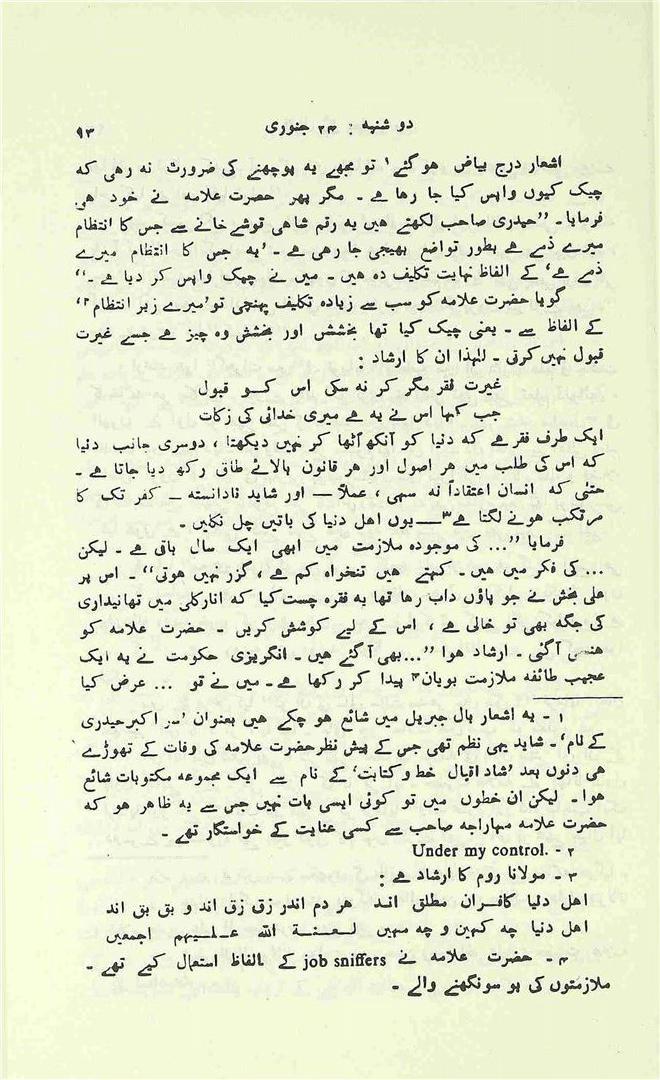 دو شنبہ : ۲۴ جنوری ۹۳
اشعار درج بیاض ہوگئے۱ تو مجھے یہ پوچھنے کی ضرورت نہ رہی کہ
چیک کیوں واپس کیا جا رہا ہے ۔ مگر پھر حضرت علامہ نے خود ہی
فرمایا۔ ''حیدری صاحب لکھتے ہیں یہ رقم شاہی توشے خانے سے جس کا انتظام
میرے ذمے ہے بطور تواضع بھیجی جا رہی ہے ۔ 'یہ جس کا انتظام میرے
ذمے ہے' کے الفاظ نہایت تکلیف دہ ہیں۔ میں نے چیک واپس کر دیا ہے ۔''
گویا حضرت علامہ کو سب سے زیادہ تکلیف پہنچی تو 'میرے زیر انتظام۲'
کے الفاظ سے ۔ یعنی چیک کیا تھا بخشش اور بخشش وہ چیز ہے جسے غیرت
قبول نہیں کرتی ۔ لہٰذا ان کا ارشاد :
غیرت فقر مگر کر نہ سکی اس کو قبول
جب کہا اس نے یہ ہے میری خدائی کی زکات
ایک طرف فقر ہے کہ دنیا کو آنکھ اُٹھا کر نہیں دیکھتا ، دوسری جانب دنیا
کہ اس کی طلب میں ہر اصول اور ہر قانون بالائے طاق رکھ دیا جاتا ہے ۔
حتیٰی کہ انسان اعتقاداً نہ سہی ، عملاً — اور شاید نادانستہ — کفر تک کا
مرتکب ہونے لگتا ہے۳ — یوں اہل دنیا کی باتیں چل نکلیں ۔
فرمایا ''... کی موجودہ ملازمت میں ابھی ایک سال باقی ہے ۔ لیکن
... کی فکر میں ہیں ۔ کہتے ہیں تنخواہ کم ہے ، گزر نہیں ہوتی'' ۔ اس پر
علی بخش نے جو پاؤں داب رہا تھا یہ فقرہ چست کیا کہ انارکلی میں تھانیداری
کی جگہ بھی تو خالی ہے ، اس کے لیے کوشش کریں ۔ حضرت علامہ کو
ہنسی آگئی ۔ ارشاد ہوا ''...بھی آگئے ہیں ۔ انگریزی حکومت نے یہ ایک
عجیب طائفہ ملازمت بویان۴ پیدا کر رکھا ہے ۔ میں نے تو ... عرض کیا
۱ ۔ یہ اشعار بال جبریل میں شائع ہو چکے ہیں بعنوان 'سر اکبر حیدری
کے نام'۔ شاید یہی نظم تھی جس کے پیش نظر حضرت علامہ کی وفات کے تھوڑے
ہی دنوں بعد 'شاد اقبال خط و کتابت' کے نام سے ایک مجموعہ مکتوبات شائع
ہوا۔ لیکن ان خطوں میں تو کوئی ایسی بات نہیں جس سے یہ ظاہر ہو کہ
حضرت علامہ مہاراجہ صاحب سے کسی عنایت کے خواستگار تھے ۔
۲ ۔ Under my control.
۳ ۔ مولانا روم کا ارشاد ہے :
اہل دنیا کافران مطلق اند ہر دم اندر زق زق اند و بق بق اند
اہل دنیا چہ کہین و چہ مہین لعنۃ اللہ علیہم اجمعین
۴ ۔ حضرت علامہ نے job sniffers کے الفاظ استعمال کیے تھے ۔
ملازمتوں کی بو سونگھنے والے ۔